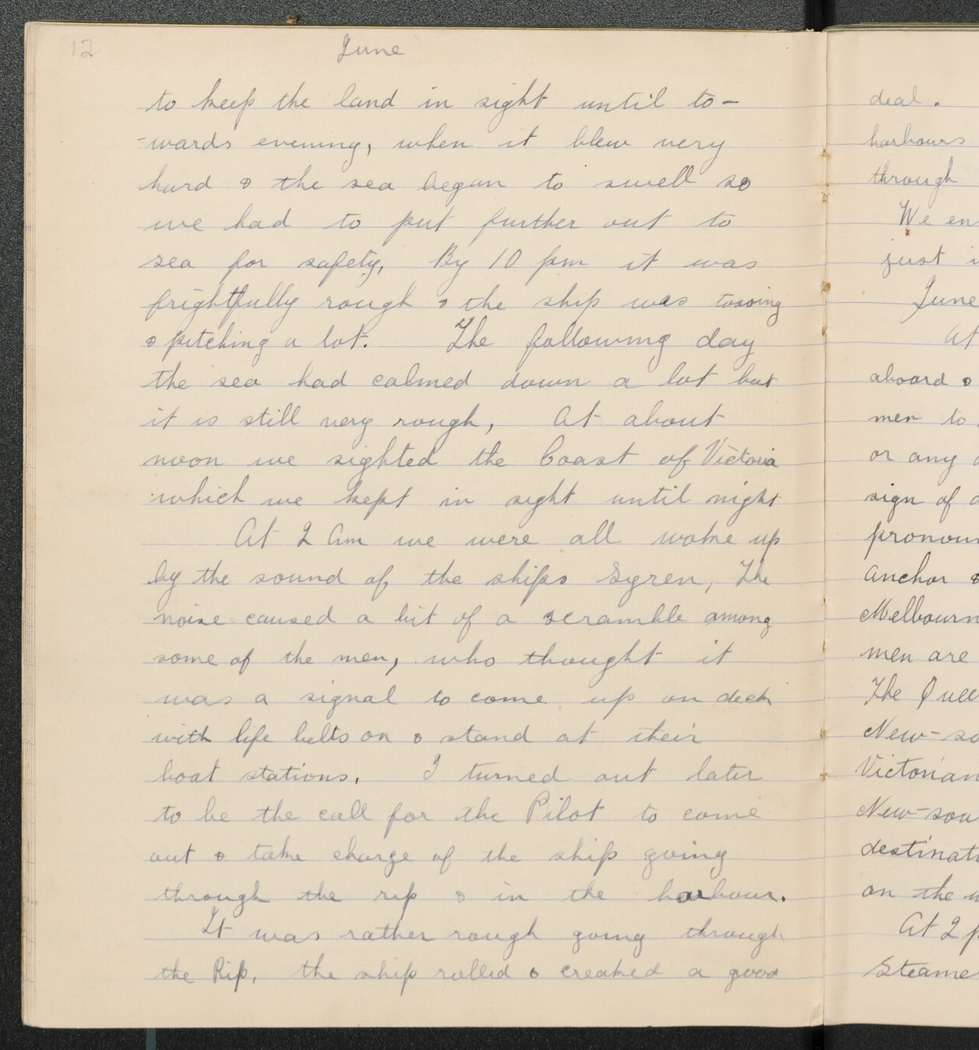 12
June
to keep the land in sight until to-
=wards evening, when it blew very
hard & the sea began to swell so
we had to put further out to
sea for safety, By 10 pm it was
frightfully rough & the ship was tossing
& pitching a lot. The following day
the sea had calmed down a lot but
it is still very rough, At about
noon we sighted the Coast of Victoria
which we kept in sight until night
At 2 Am we were all woke up
by the sound of the ships Syren, The
noise caused a bit of a scramble among
some of the men, who thought it
was a signal to come up on deck
with life belts on & stand at their
boat stations. I turned out later
to be the call for the Pilot to come
out & take charge of the ship going
through the rip & in the harbour.
It was rather rough going through
the Rip, the ship rolled & creaked a good
deal.
harbours
through
We en
just
June
At
aboard &
men to
or any
sign of
pronoun
anchor &
Melbourn
men are
The Quee
New-so
Victorian
New-sou
destinati
on the
At 2 p
Steame